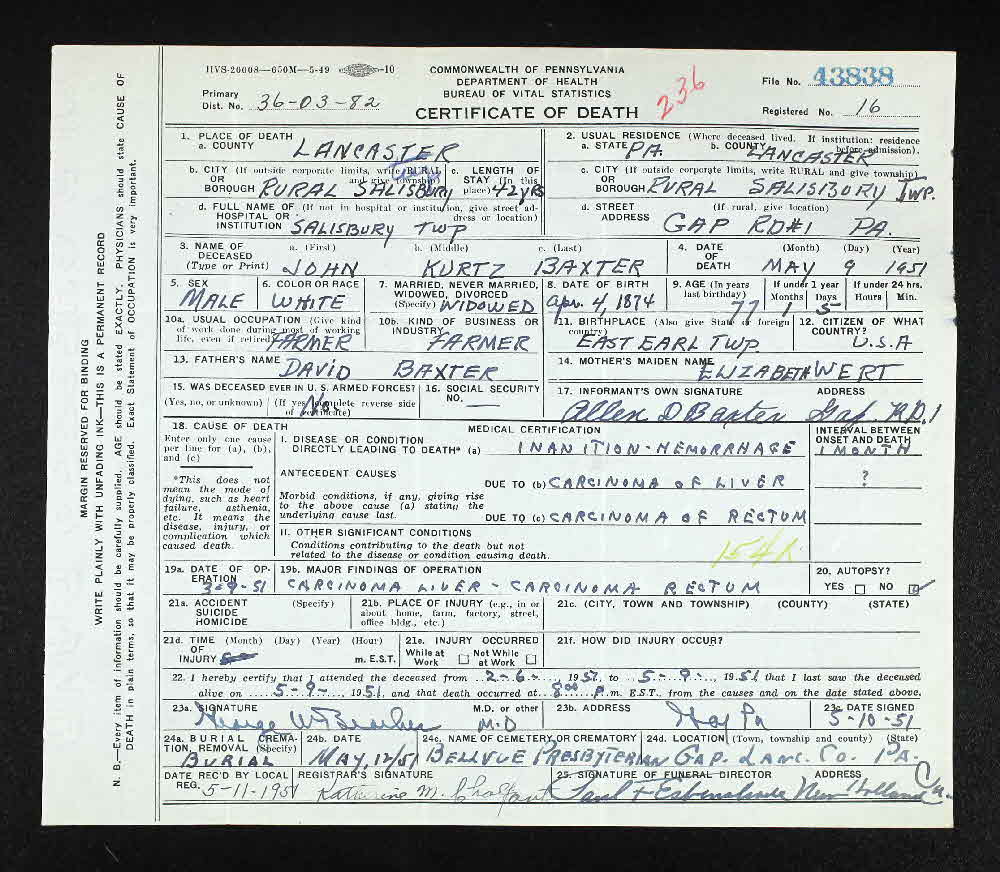 HVS-20008—650M—5-49 —10
COMMONWEALTH OF PENNSYLVANIA
DEPARTMENT OF HEALTH
BUREAU OF VITAL STATISTICS
CERTIFICATE OF DEATH
236
File No. 43838
Primary Dist. No. 36-03-82
Registered No. 16
1. PLACE OF DEATH
a. COUNTY LANCASTER
2. USUAL RESIDENCE (Where deceased lived. If institution: residence before admission).
a. STATE PA. b. COUNTY LANCASTER
b. CITY (If outside corporate limits, write RURAL and give township) OR BOROUGH RURAL SALISBURY
c. LENGTH OF STAY (In this place) 42 YRS
c. CITY (If outside corporate limits, write RURAL and give township) OR BOROUGH RURAL SALISBURY TWP.
d. FULL NAME OF (If not in hospital or institution, give street address or location) HOSPITAL OR INSTITUTION SALISBURY TWP
d. STREET ADDRESS (If rural, give location) GAP RD#1 PA.
3. NAME OF DECEASED (Type or Print) a. (First) b. (Middle) c. (Last)
JOHN KURTZ BAXTER
4. DATE OF DEATH (Month) (Day) (Year)
MAY 9 1951
5. SEX MALE
6. COLOR OR RACE WHITE
7. MARRIED, NEVER MARRIED, WIDOWED, DIVORCED (Specify) WIDOWED
8. DATE OF BIRTH Apr. 4, 1874
9. AGE (In years last birthday) 77 If under 1 year Months 1 Days 5 If under 24 hrs. Hours Min.
10a. USUAL OCCUPATION (Give kind of work done during most of working life, even if retired) FARMER
10b. KIND OF BUSINESS OR INDUSTRY FARMER
11. BIRTHPLACE (Also give State or foreign country) EAST EARL TWP.
12. CITIZEN OF WHAT COUNTRY? U.S.A
13. FATHER'S NAME DAVID BAXTER
14. MOTHER'S MAIDEN NAME ELIZABETH WERT
15. WAS DECEASED EVER IN U. S. ARMED FORCES? (Yes, no, or unknown) (If yes, complete reverse side of certificate) No
16. SOCIAL SECURITY NO. —
17. INFORMANT'S OWN SIGNATURE ADDRESS
Allen D Baxter Gap R.D.1
18. CAUSE OF DEATH
Enter only one cause per line for (a), (b), and (c)
*This does not mean the mode of dying, such as heart failure, asthenia, etc. It means the disease, injury, or complication which caused death.
MEDICAL CERTIFICATION
INTERVAL BETWEEN ONSET AND DEATH
I. DISEASE OR CONDITION DIRECTLY LEADING TO DEATH* (a) INANITION-HEMORRHAGE 1 MONTH
ANTECEDENT CAUSES
Morbid conditions, if any, giving rise to the above cause (a) stating the underlying cause last.
DUE TO (b) CARCINOMA OF LIVER ?
DUE TO (c) CARCINOMA OF RECTUM
II. OTHER SIGNIFICANT CONDITIONS
Conditions contributing to the death but not related to the disease or condition causing death.
154X
19a. DATE OF OPERATION 3-9-51
19b. MAJOR FINDINGS OF OPERATION
CARCINOMA LIVER - CARCINOMA RECTUM
20. AUTOPSY?
YES NO
21a. ACCIDENT SUICIDE HOMICIDE (Specify)
21b. PLACE OF INJURY (e.g., in or about home, farm, factory, street, office bldg., etc.)
21c. (CITY, TOWN AND TOWNSHIP) (COUNTY) (STATE)
21d. TIME OF INJURY (Month) (Day) (Year) (Hour) m. E.S.T.
21e. INJURY OCCURRED While at Work Not While at Work
21f. HOW DID INJURY OCCUR?
22. I hereby certify that I attended the deceased from 2-6-, 1951, to 5-9-, 1951 that I last saw the deceased
alive on 5-9-, 1951, and that death occurred at 8 P.m. E.S.T., from the causes and on the date stated above.
23a. SIGNATURE M.D. or other
M.D
23b. ADDRESS Pa
23c. DATE SIGNED 5-10-51
24a. BURIAL, CREMATION, REMOVAL (Specify) BURIAL
24b. DATE MAY, 12/51
24c. NAME OF CEMETERY OR CREMATORY BELLVUE PRESBYTERIAN
24d. LOCATION (Town, township and county) (State) GAP. LANC. CO. PA.
DATE REC'D BY LOCAL REG. 5-11-1951
REGISTRAR'S SIGNATURE Katherine M. Chalfant
25. SIGNATURE OF FUNERAL DIRECTOR ADDRESS
Paul F Eshenshade New Holland Pa.
MARGIN RESERVED FOR BINDING
WRITE PLAINLY WITH UNFADING INK—THIS IS A PERMANENT RECORD
N. B.—Every item of information should be carefully supplied. AGE should be stated EXACTLY. PHYSICIANS should state CAUSE OF
DEATH in plain terms, so that it may be properly classified. Exact Statement of OCCUPATION is very important.